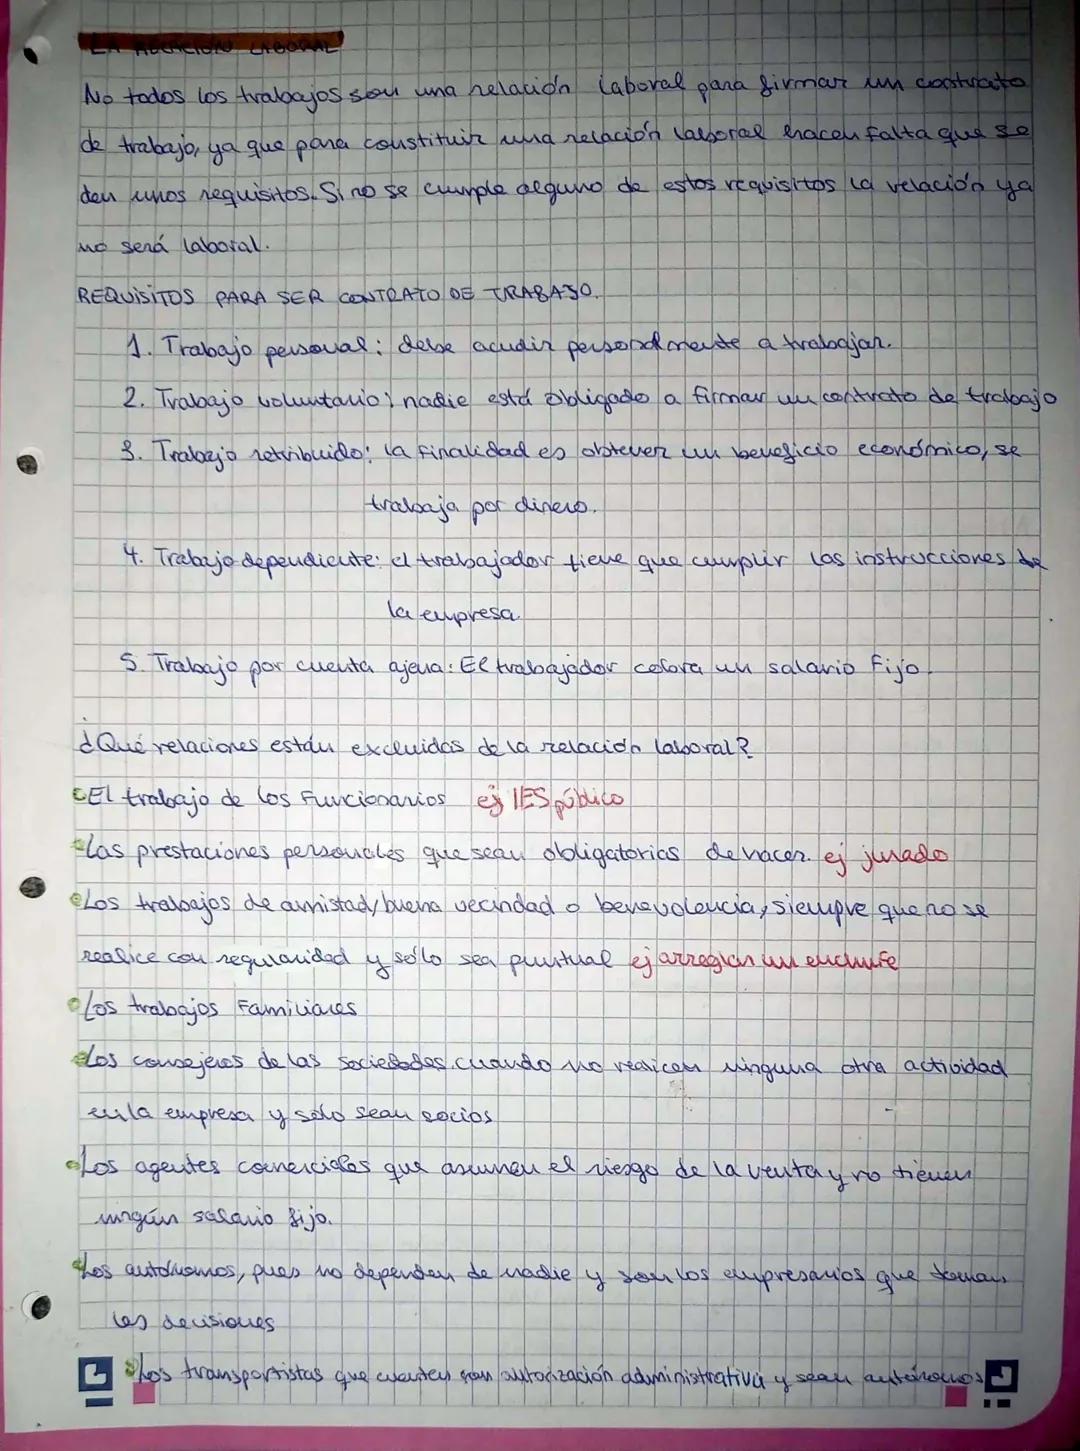 LA RELACIÓN LABORAL
No todos los trabajos son una relación laboral para firmar un contrato
de trabajo, ya que para constituir una relación laboral hacen falta que se
den unos requisitos. Si no se cumple alguno de estos requisitos la relación ya
no será laboral.
REQUISITOS PARA SER CONTRATO DE TRABAJO.
1. Trabajo personal: debe acudir personalmente a trabajar.
2. Trabajo voluntario: nadie está obligado a firmar un contrato de trabajo
3. Trabajo retribuido: la finalidad es obtener un beneficio económico, se
trabaja por dinero.
4. Trabajo dependiente: el trabajador tiene que cumplir las instrucciones de
la empresa.
5. Trabajo por cuenta ajena: El trabajador cobra un salario fijo.
¿Qué relaciones están excluidas de la relación laboral?
El trabajo de los funcionarios ej IES público
Las prestaciones personales que sean obligatorias de hacer. ej jurado
Los trabajos de amistad, buena vecindad o benevolencia, siempre que no se
realice con regularidad y sólo sea puntual ej arreglar un enchufe
Los trabajos familiares
Los consejeros de las sociedades cuando no realicen ninguna otra actividad
en la empresa y sólo sean socios
Los agentes comerciales que asumen el riesgo de la venta y no tienen
ningún salario fijo.
Los autónomos, pues no dependen de nadie y son los empresarios que toman
las decisiones
Los transportistas que cuenten con autorización administrativa y sean autónomos